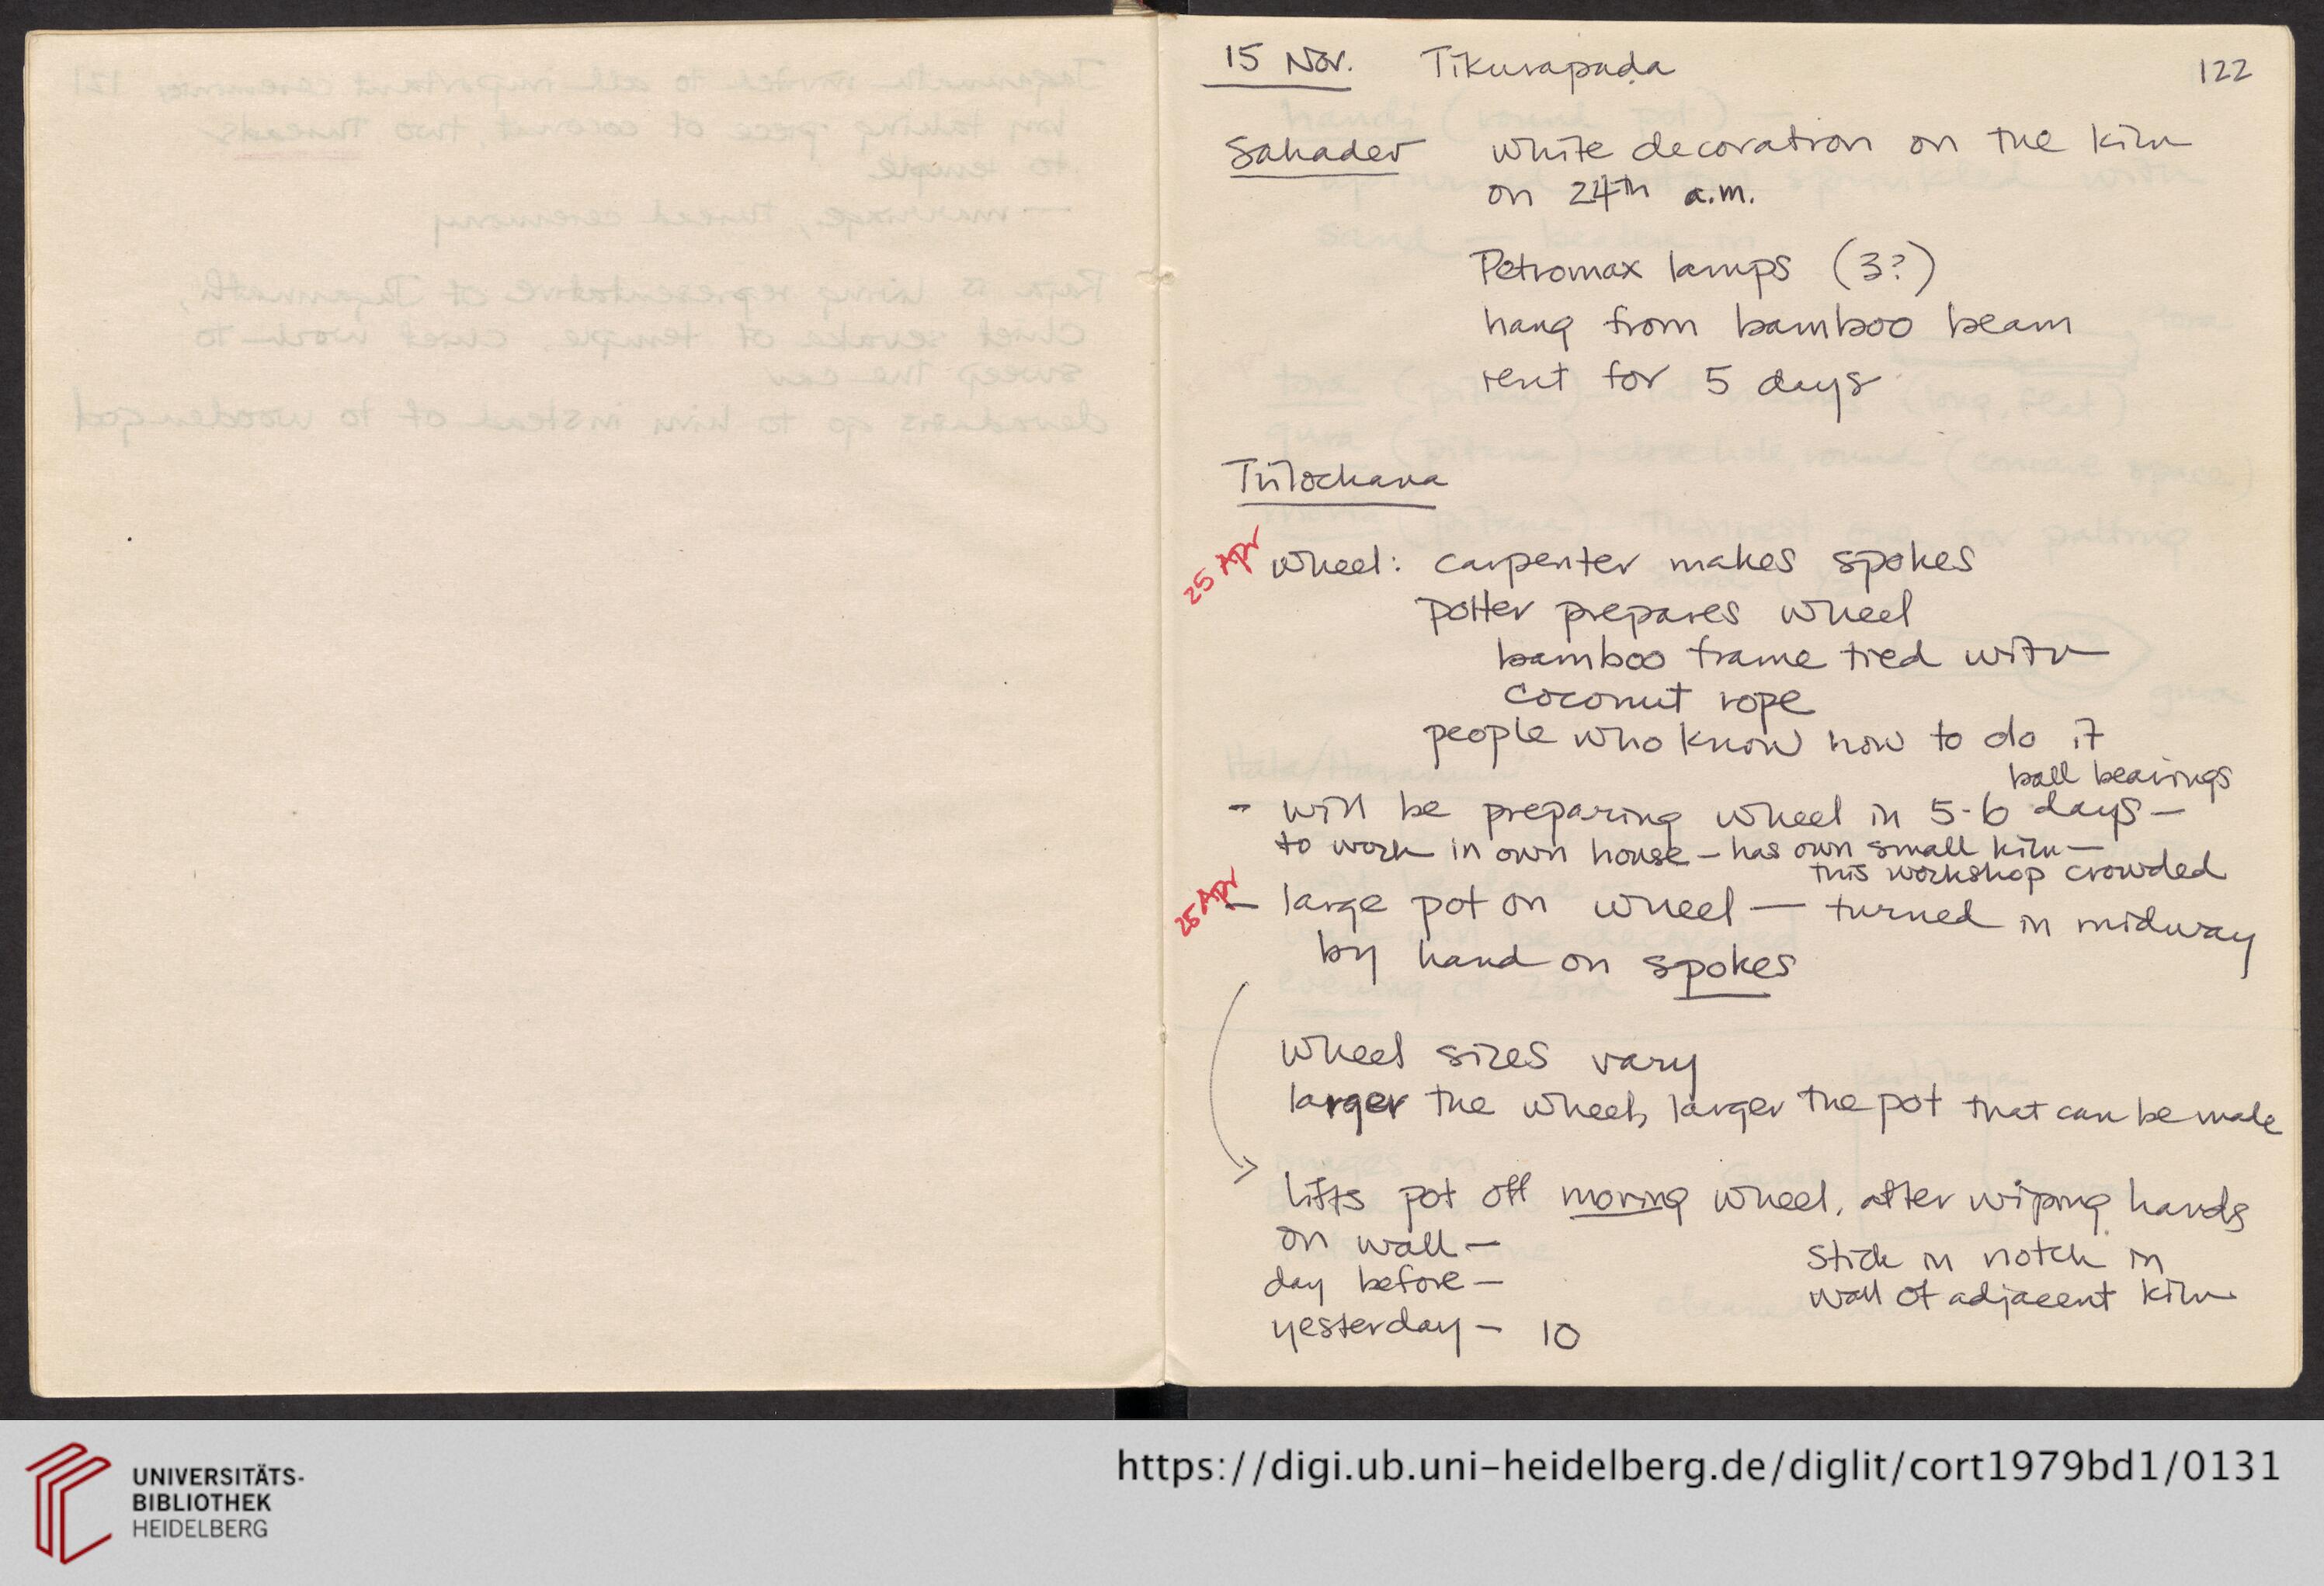 15 Nov. Tikurapaḍa 122
Sahadev white decoration on the kiln
on 24th a.m.
Petromax lamps (3?)
hang from bamboo beam
rent for 5 days
Trilochana
25 Apr wheel: carpenter makes spokes
potter prepares wheel
bamboo frame tied with
coconut rope
people who know how to do it
ball bearings
- will be preparing wheel in 5-6 days —
to work in own house — has own small kiln —
this workshop crowded
25 Apr — large pot on wheel — turned in midway
by hand on spokes
wheel sizes vary
larger the wheel, larger the pot that can be made
lifts pot off moving wheel, after wiping hands
on wall —
day before —
yesterday — 10
stick in notch in
wall of adjacent kiln
UNIVERSITÄTS-
BIBLIOTHEK
HEIDELBERG
https://digi.ub.uni-heidelberg.de/diglit/cort1979bd1/0131